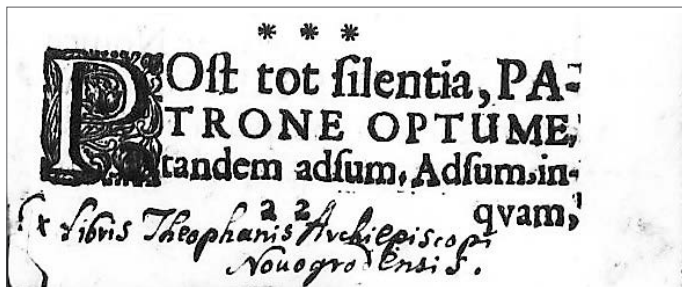 * * *
POſt tot ſilentia, PA-
TRONE OPTUME,
tandem adſum, Adſum, in-
a 2 qvam,
Ex libris Theophanis Archiepiscopi
Novogrodensis.